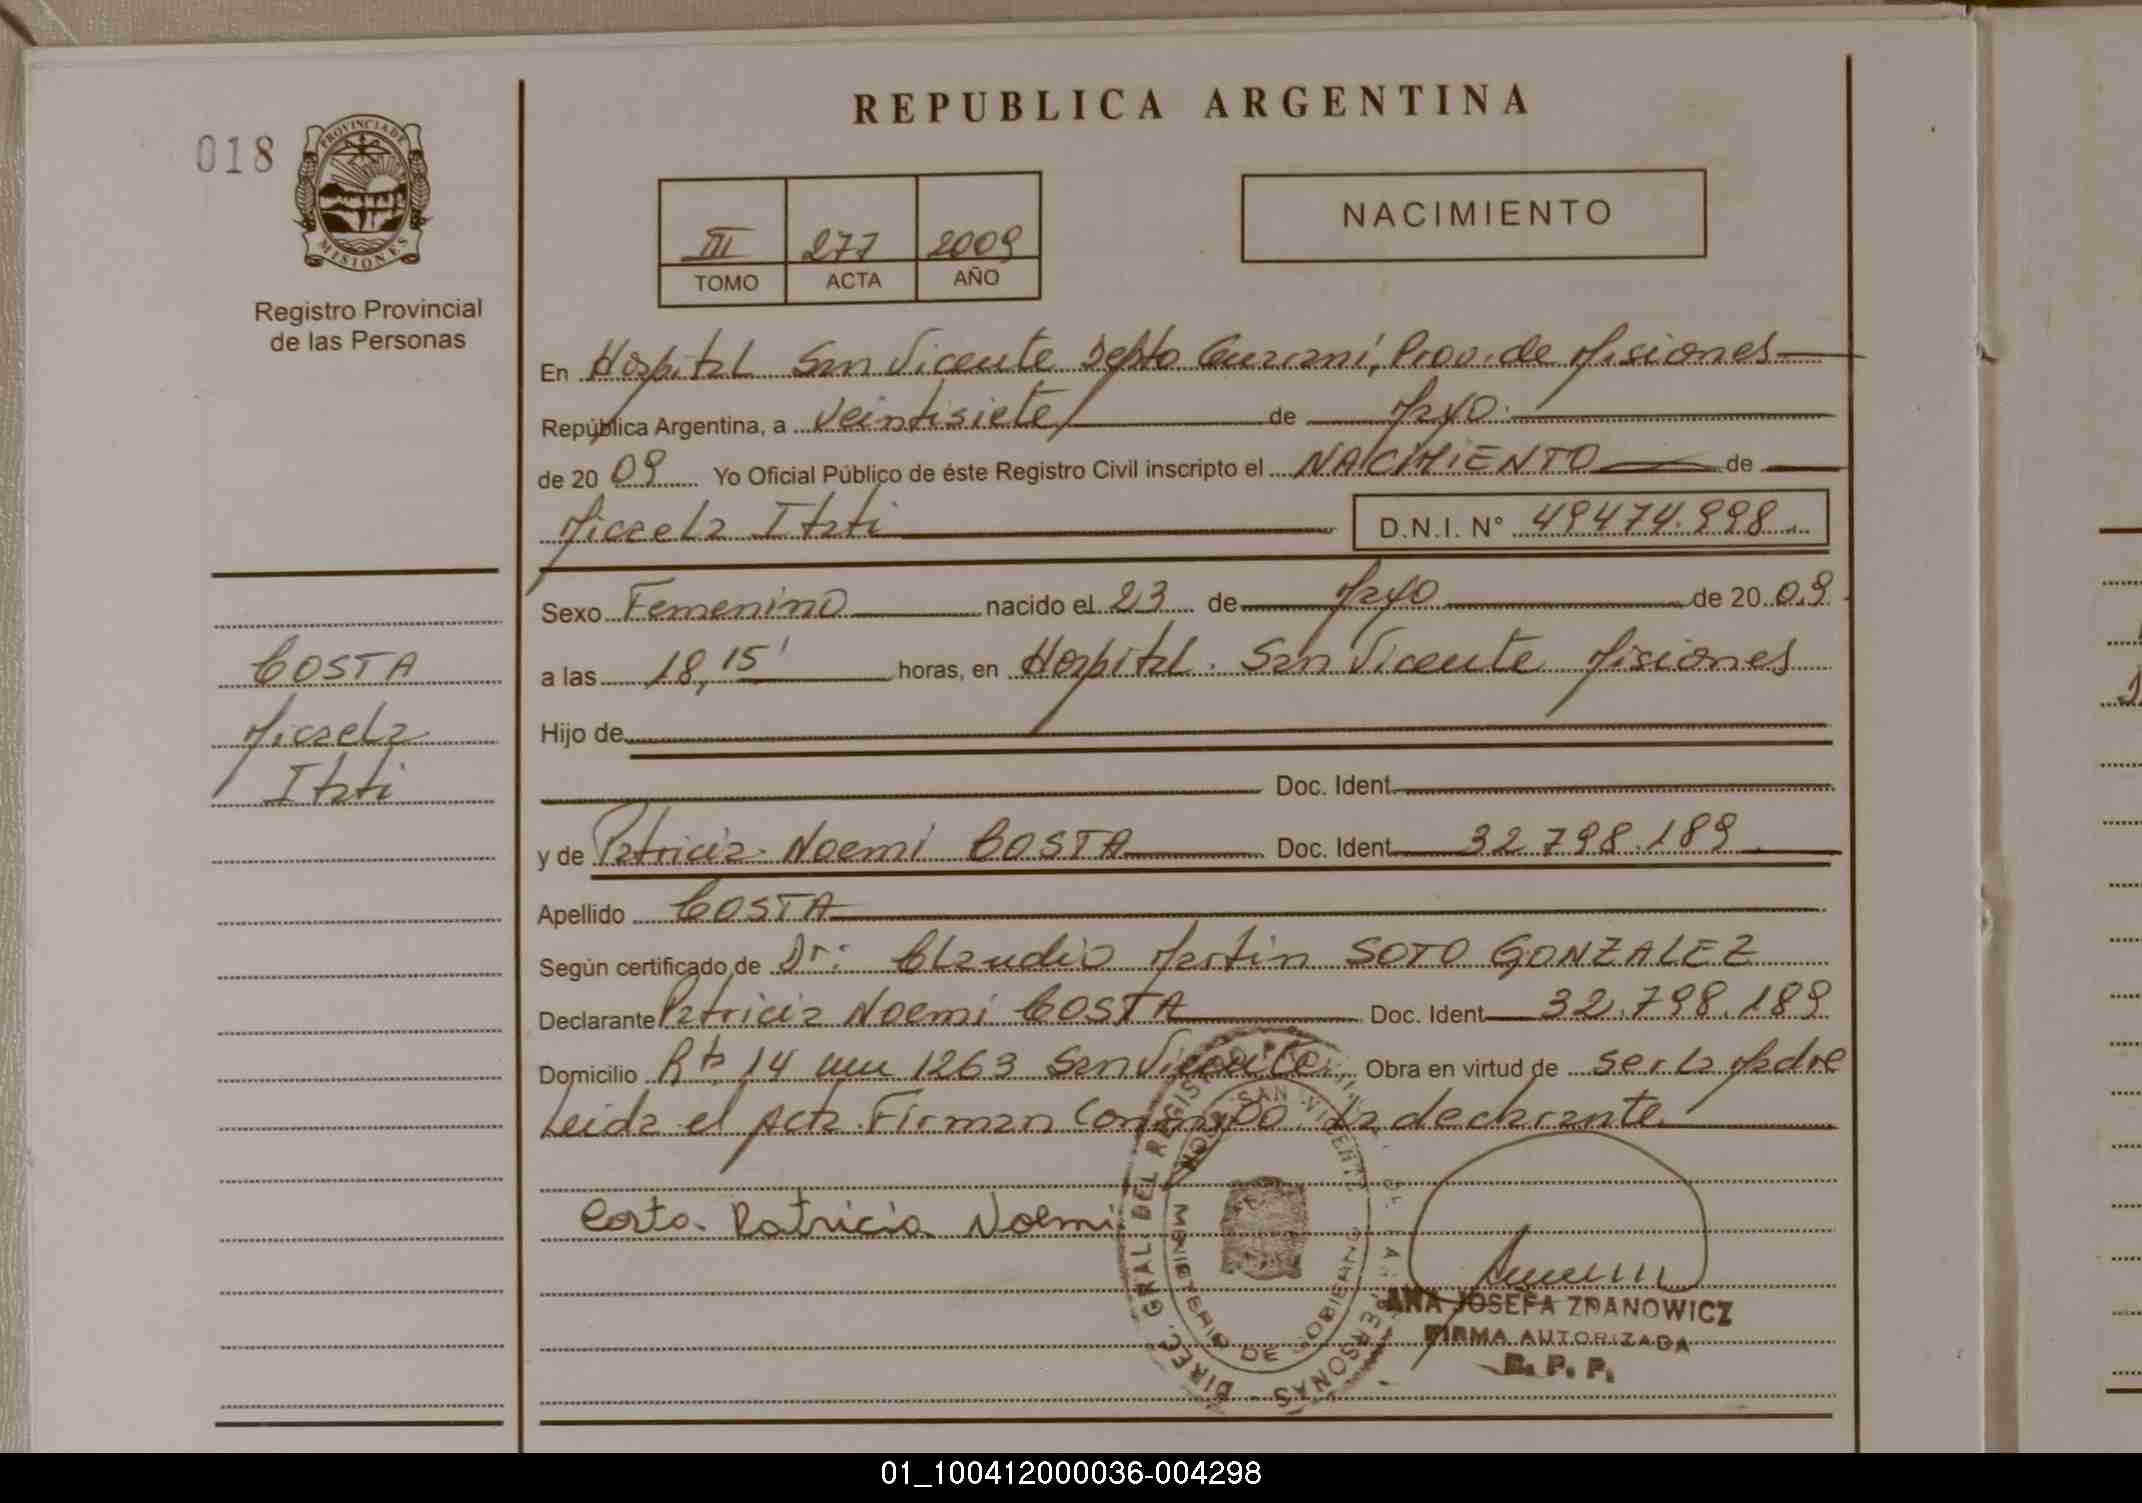 018
PROVINCIA DE
MISIONES
Registro Provincial
de las Personas
REPUBLICA ARGENTINA
III 277 2009
TOMO ACTA AÑO
NACIMIENTO
En Hospital San Vicente Depto Guaraní, Prov. de Misiones
República Argentina, a veintisiete de Mayo
de 2009 Yo Oficial Público de éste Registro Civil inscripto el NACIMIENTO de
Micaela Itati D.N.I. N° 49474.998
Sexo Femenino nacido el 23 de Mayo de 2009
a las 18,15' horas, en Hospital. San Vicente Misiones
Hijo de
Doc. Ident.
y de Patricia Noemi COSTA Doc. Ident. 32.798.189
Apellido COSTA
Según certificado de Dr: Claudio Martin SOTO GONZALEZ
Declarante Patricia Noemi COSTA Doc. Ident. 32.798.189
Domicilio 14 1263 San Vicente. Obra en virtud de ser la Madre
Leida el Acta Firman Conmigo la declarante.
Costa Patricia Noemi
COSTA
Micaela
Itati
DIREC. GRAL. DEL REGISTRO PERSONAS
SAN VICENTE
MINISTERIO DE GOBIERNO
ANA JOSEFA ZDANOWICZ
FIRMA AUTORIZADA
R. P. P.
01_100412000036-004298